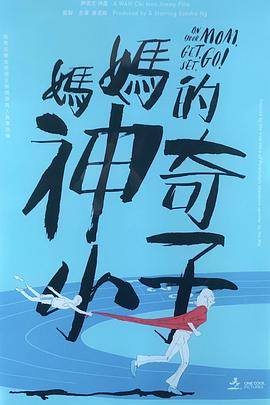 尹志文 作品 A WAN Chi Man Jimmy Film
監製/主演 吳君如 Produced by & Starring Sandra Ng
ON YOUR MOM,
GET SET
GO!
媽媽的
神奇
小子
ONE COOL
PICTURES